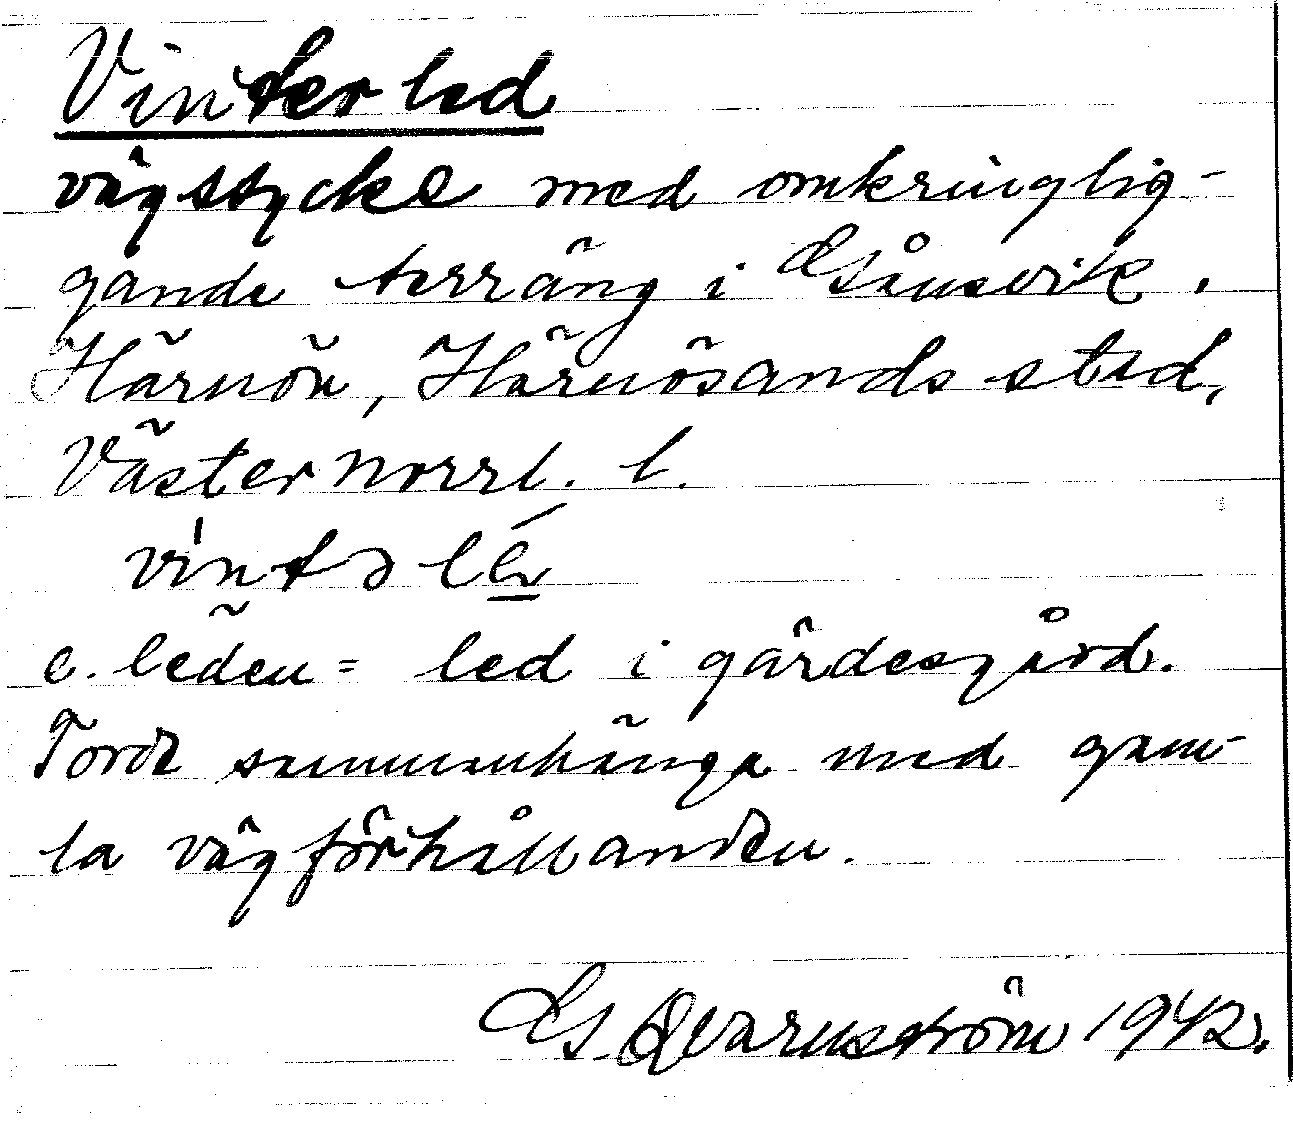 Vinterled
vägstycke med omkringlig-
gande terräng i Gånsvik,
Härnön, Härnösands stad,
Västernorrl. l.
vintəlé̲
e. leden = led i gärdesgård.
Torde sammanhänga med gam-
la vägförhållanden.
G. Qvarnström 1942.